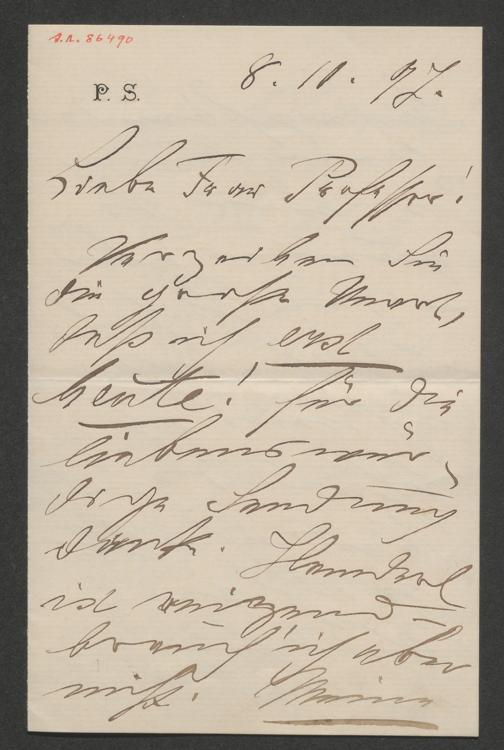 J.N. 86490
P. S.
8. 11. 97.
Liebe Frau Professor!
Verzeihen Sie
die große Unart,
daß ich erst
heute! für die
liebenswür-
dige Sendung
danke.
ist reizend
brauch' ich aber
nicht. Meine